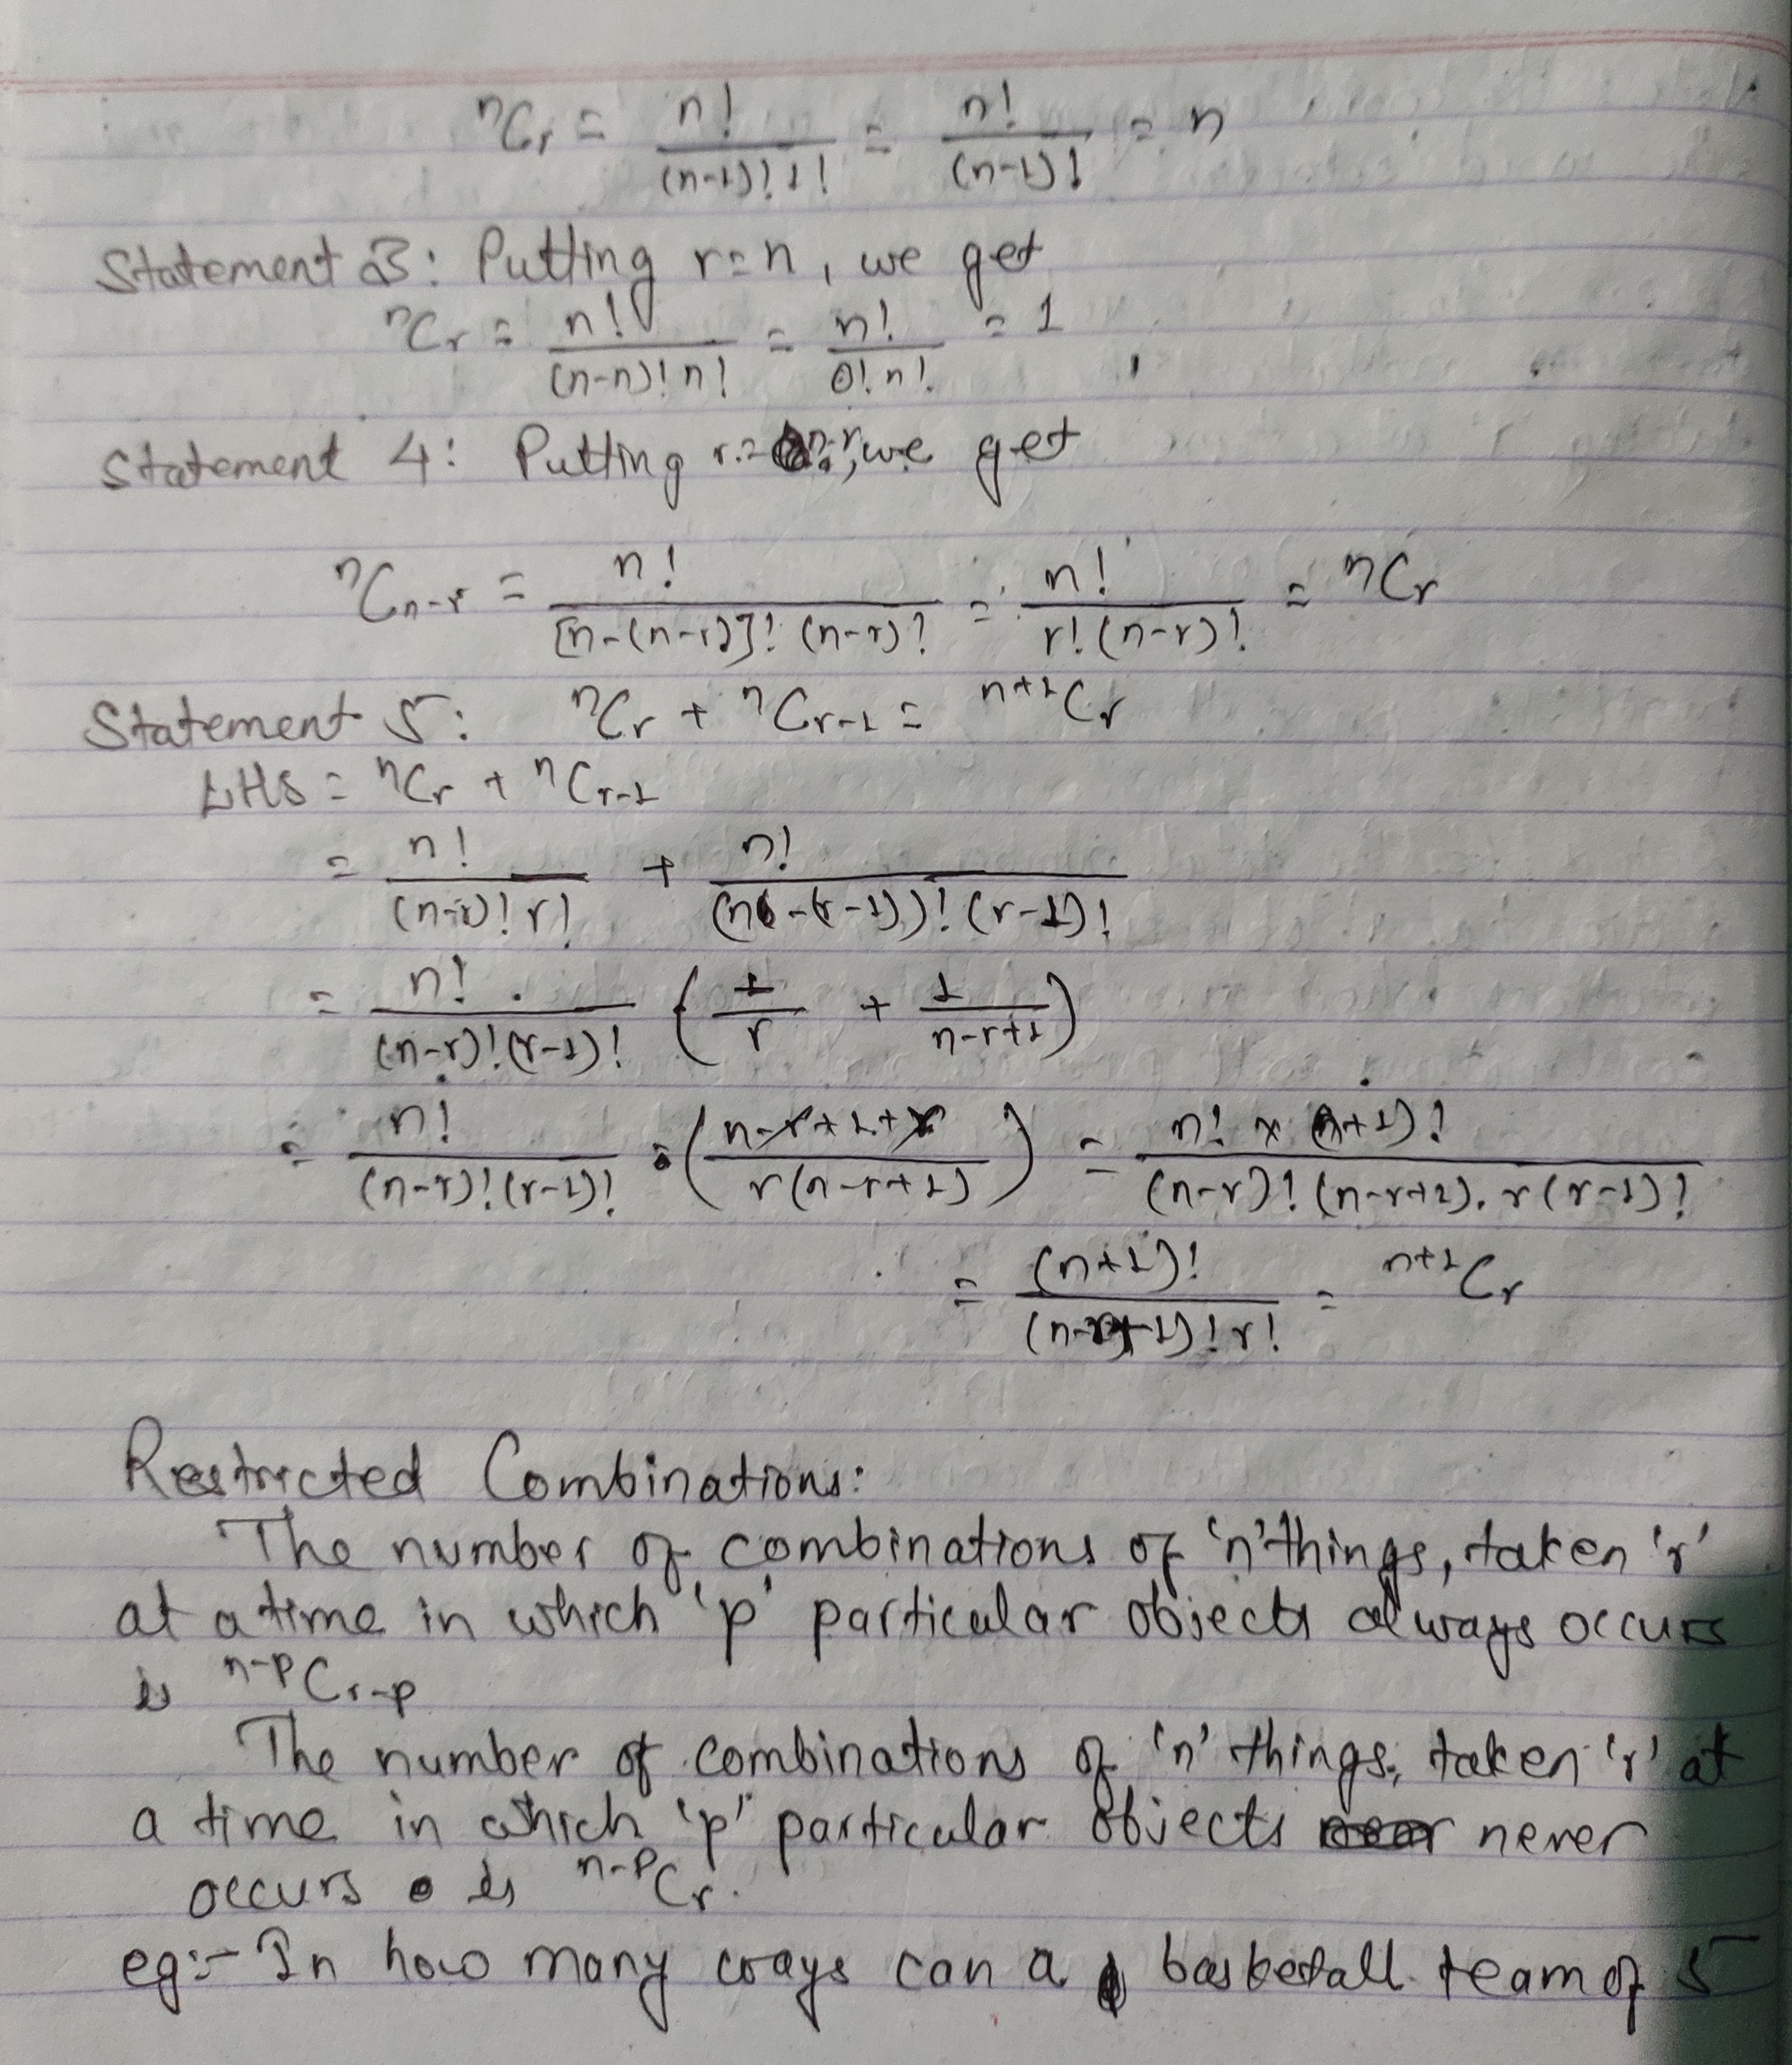 ⁿCᵣ = n! / (n-1)! 1! = n! / (n-1)! = n
Statement 3: Putting r=n, we get
ⁿCᵣ = n! / (n-n)! n! = n! / 0! n! = 1
Statement 4: Putting r = n-r, we get
ⁿCₙ₋ᵣ = n! / [n-(n-r)]! (n-r)! = n! / r! (n-r)! = ⁿCᵣ
Statement 5: ⁿCᵣ + ⁿCᵣ₋₁ = ⁿ⁺¹Cᵣ
LHS = ⁿCᵣ + ⁿCᵣ₋₁
= n! / (n-r)! r! + n! / (n-(r-1))! (r-1)!
= n! / (n-r)! (r-1)! (1/r + 1/n-r+1)
= n! / (n-r)! (r-1)! · (n-r+1+r / r(n-r+1)) = n! × (n+1)! / (n-r)! (n-r+1). r(r-1)!
= (n+1)! / (n-r+1)! r! = ⁿ⁺¹Cᵣ
Restricted Combinations:
The number of combinations of 'n' things, taken 'r'
at a time in which 'p' particular objects always occurs
is ⁿ⁻ᵖCᵣ₋ₚ
The number of combinations of 'n' things, taken 'r' at
a time in which 'p' particular objects never
occurs is ⁿ⁻ᵖCᵣ.
eg:- In how many ways can a basketall team of 5